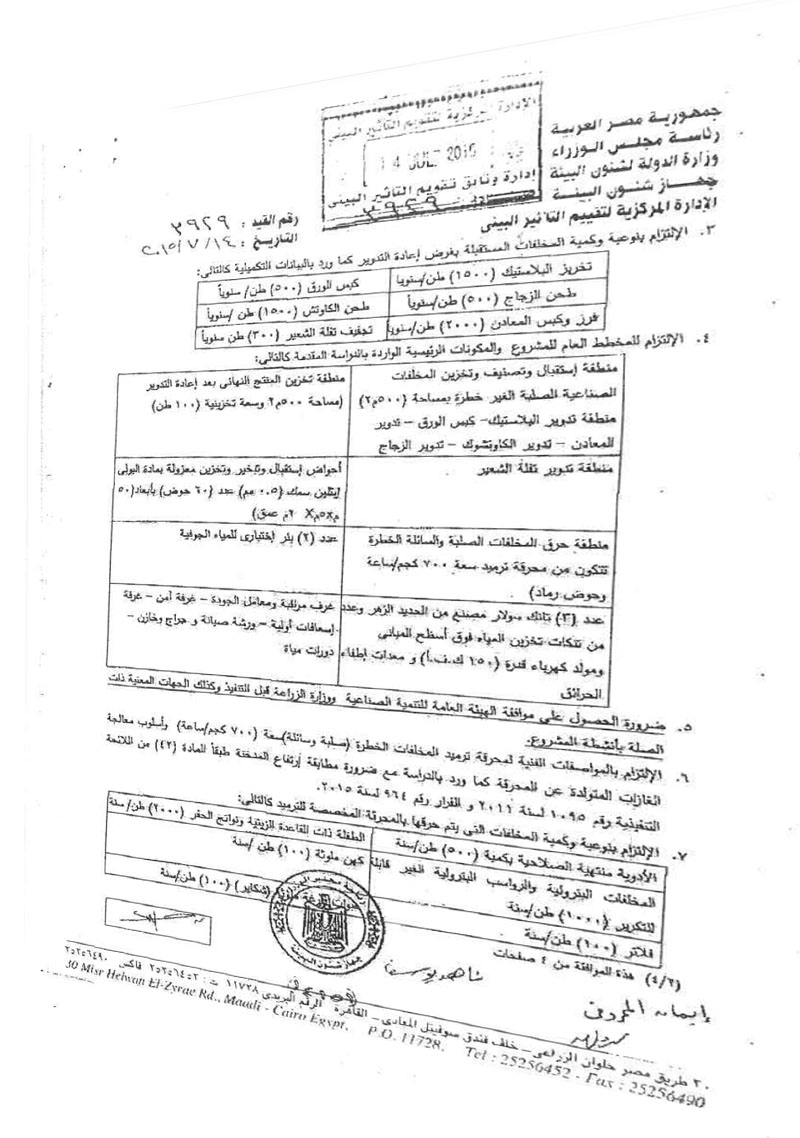 جمهورية مصر العربية
رئاسة مجلس الوزراء
وزارة الدولة لشئون البيئة
جهاز شئون البيئة
الإدارة المركزية لتقييم التأثير البيئى
الإدارة المركزية لتقويم التأثير البيئى
14 2015
إدارة وثائق تقويم التأثير البيئى
٣٩٢٩
رقم القيد : ٣٩٢٩
التاريخ : ٢٠١٥/٧/١٤
٣. الإلتزام بنوعية وكمية المخلفات المستقبلة بغرض إعادة التدوير كما ورد بالبيانات التكميلية كالتالى:
تخريز البلاستيك (١٥٠٠) طن/سنوياً
كبس الورق (٥٠٠) طن/ سنوياً
طحن الزجاج (٥٠٠) طن/سنوياً
طحن الكاوتش (١٥٠٠) طن /سنوياً
فرز وكبس المعادن (٢٠٠٠) طن/سنوياً
تجفيف تفلة الشعير (٣٠٠) طن سنوياً
٤. الإلتزام للمخطط العام للمشروع والمكونات الرئيسية الواردة بالدراسة المقدمة كالتالى:
منطقة إستقبال وتصنيف وتخزين المخلفات
الصناعية الصلبة الغير خطرة بمساحة (٥٠٠م٢)
منطقة تدوير البلاستيك– كبس الورق – تدوير
المعادن – تدوير الكاوتشوك – تدوير الزجاج
منطقة تخزين المنتج النهائى بعد إعادة التدوير
(مساحة ٥٠٠م٢ وسعة تخزينية (١٠٠ طن)
منطقة تدوير تفلة الشعير
أحواض إستقبال وتبخير وتخزين معزولة بمادة البولى
إيثلين سمك (٠.٥ مم) عدد (٦٠ حوض) بأبعاد(٥٠
م٥xمX ٢م عمق)
منطقة حرق المخلفات الصلبة والسائلة الخطرة
تتكون من محرقة ترميد سعة ٧٠٠ كجم/ساعة
وحوض رماد)
عدد (٢) بئر إختبارى للمياه الجوفية
عدد (٣) تانك سولار مصنع من الحديد الزهر وعدد
من تنكات تخزين المياه فوق أسطح المبانى
ومولد كهرباء قدرة (٢٥٠ ك.ف.أ) و معدات إطفاء
الحرائق
غرف مراقبة ومعامل الجودة – غرفة أمن – غرفة
إسعافات أولية – ورشة صيانة و جراج وخازن –
دورات مياة
٥. ضرورة الحصول على موافقة الهيئة العامة للتنمية الصناعية ووزارة الزراعة قبل التنفيذ وكذلك الجهات المعنية ذات
الصلة بأنشطة المشروع.
٦. الإلتزام بالمواصفات الفنية لمحرقة ترميد المخلفات الخطرة (صلبة وسائلة)سعة (٧٠٠ كجم/ساعة) وأسلوب معالجة
الغازات المتولدة عن المحرقة كما ورد بالدراسة مع ضرورة مطابقة إرتفاع المدخنة طبقاً للمادة (٤٢) من اللائحة
التنفيذية رقم ١٠٩٥ لسنة ٢٠١١ و القرار رقم ٩٦٤ لسنة ٢٠١٥.
٧. الإلتزام بنوعية وكمية المخلفات التى يتم حرقها بالمحرقة المخصصة للترميد كالتالى:
الأدوية منتهية الصلاحية بكمية (٥٠٠) طن/سنة
الطفلة ذات القاعدة الزيتية ونواتج الحفر (٢٠٠٠) طن/سنة
المخلفات البترولية والرواسب البترولية الغير قابلة
للتكرير (١٠٠٠) طن/سنة
كهن ملوثة (١٠٠) طن /سنة
فلاتر (١٠٠) طن/سنة
(١٠٠) طن/سنة
(٤/٢) هذة الموافقة من ٤ صفحات
جهاز شئون البيئة
٣٠ طريق مصر حلوان الزراعى – خلف فندق سوفيتيل المعادى – القاهرة الرقم البريدى ١١٧٢٨ ت : ٢٥٢٥٦٤٥٢ فاكس ٢٥٢٥٦٤٩٠
30 Misr Helwan El-Zyrae Rd., Maadi - Cairo Egypt, p.O. 11728, Tel : 25256452 - Fax : 25256490